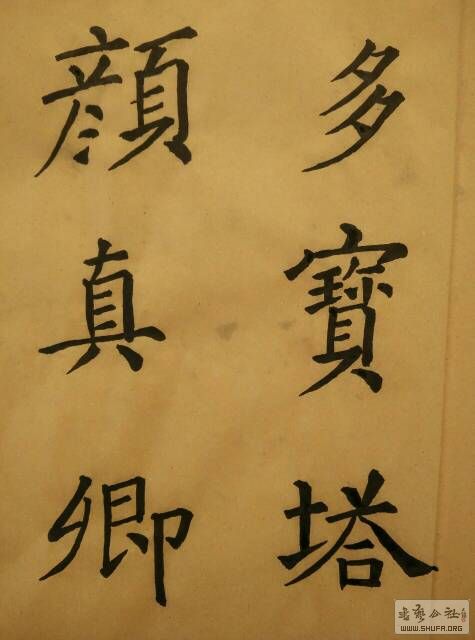 多寶塔
顔真卿
书艺公社
WWW.SHUFA.ORG